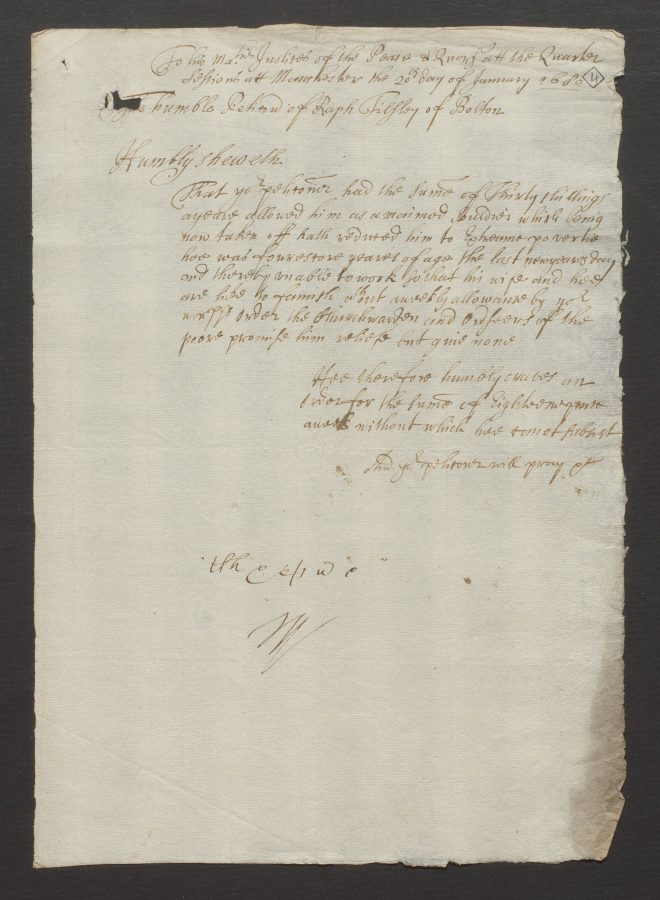 To his Ma:ties Justices of the Peace & Quor: att the Quarter
Sessions att Manchester the 20th day of January 168
The humble Peticion of Raph Tilsley of Bolton
Humbly sheweth
That yor petitoner had the sume of Thirty shillings
a yeare allowed him as a maimed souldier which being
now taken off hath reduced him to Extreame povertie
hee was fourescore yeares of age the last newyeares day
and thereby vnable to work so that his wife and hee
are like to famish wthout a weekly allowance by yor
worpps order the Churchwarden and Ordseers of the
poore promise him releife but giue none
Hee therefore humbly craves an
Order for the sume of Eighteene pence
a week without which hee canot subsist
And yor petitoner will pray &c